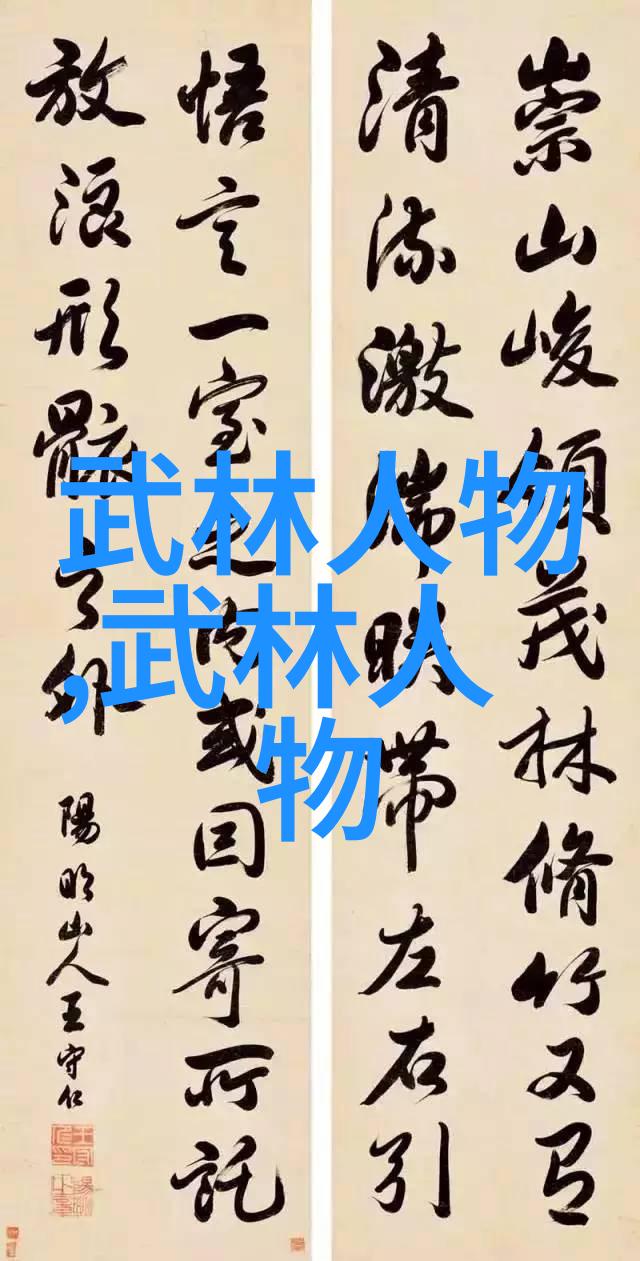 崇山峻領茂林脩竹又有
清流激湍暎帶左右引
悟言一室之内或因寄所託
放浪形骸之外
陽明山人王守仁
武林人物
,武林人
物